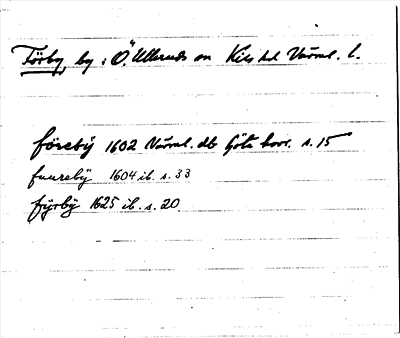 Förby, by i Ö. Ulleruds sn Kils hd Värml. l.
föreby 1602 Värml. db Göta hovr. s. 15
fuureby 1604 ib. s. 33
fyrby 1625 ib. s. 20